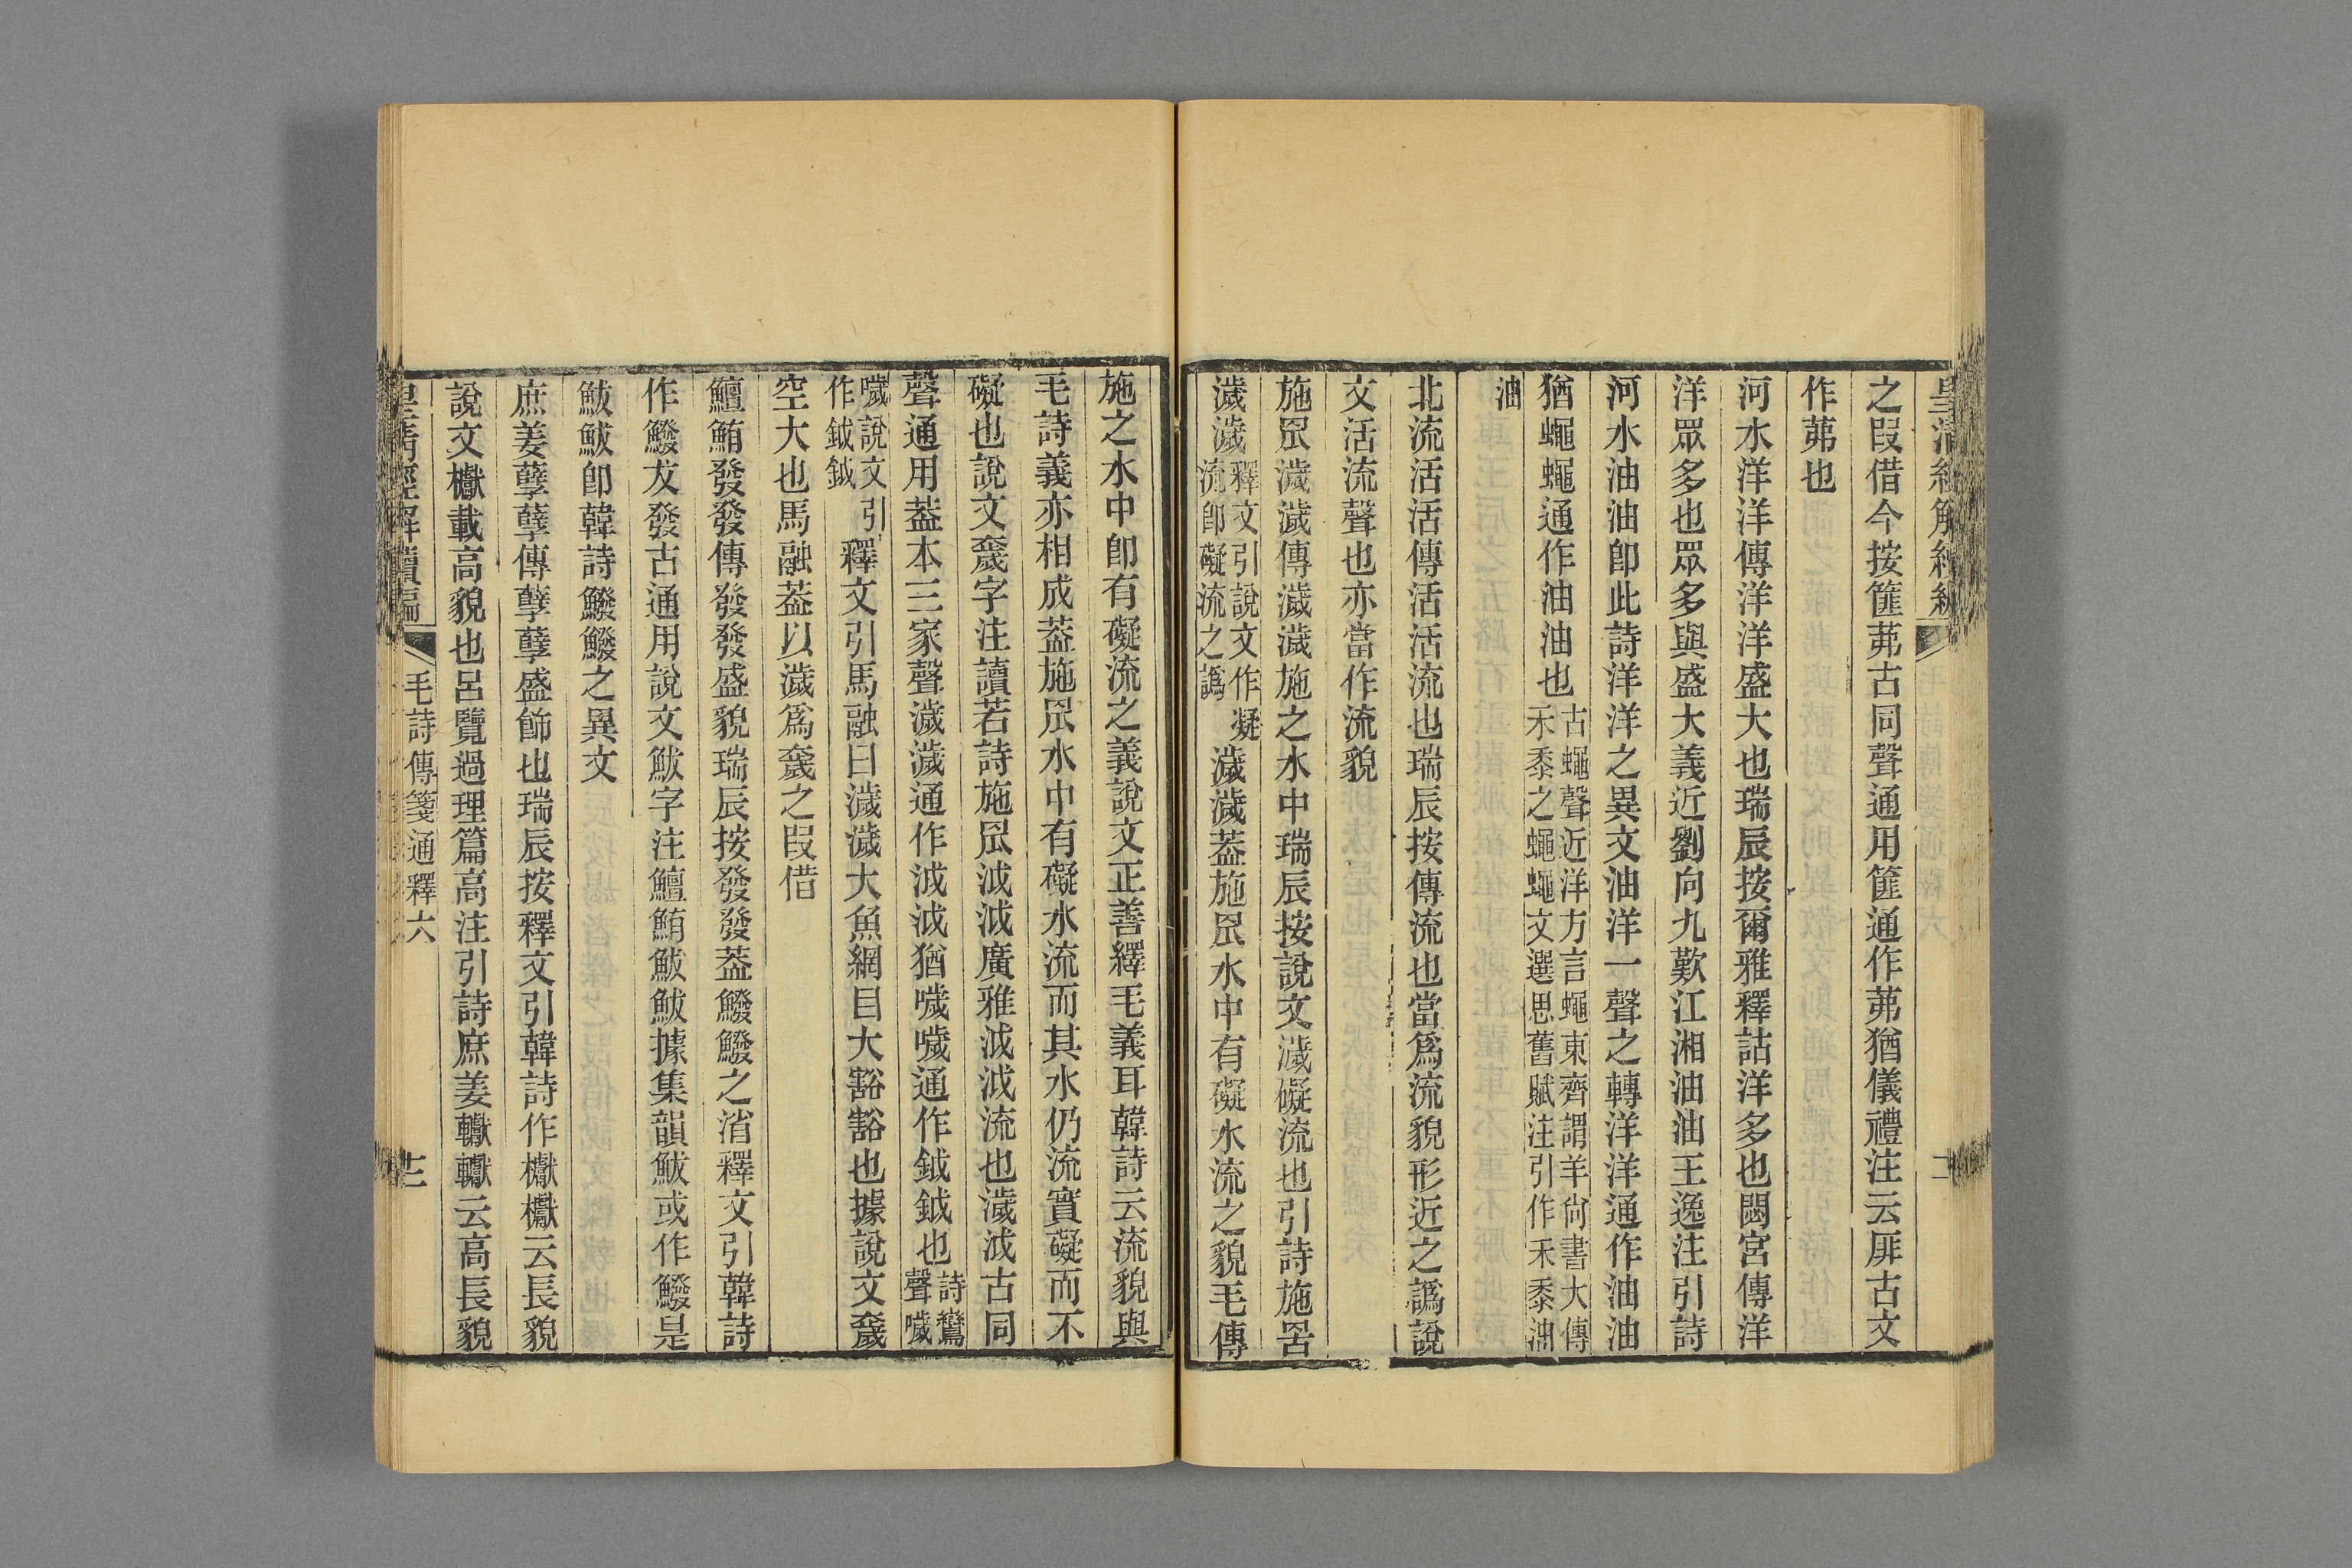 之叚借今按篚茀古同聲通用篚通作茀猶儀禮注云厞古文
作茀也
河水洋洋傳洋洋盛大也瑞辰按爾雅釋詁洋多也閟宮傳洋
洋眾多也眾多與盛大義近劉向九歎江湘油油王逸注引詩
河水油油卽此詩洋洋之異文油洋一聲之轉洋洋通作油油
猶蠅蠅通作油油也古蠅聲近洋方言蠅東齊謂羊尙書大傳禾黍之蠅蠅文選思舊賦注引作禾黍油
油
北流活活傳活活流也瑞辰按傳流也當爲流貌形近之譌說
文活流聲也亦當作流貌
施罛濊濊傳濊濊施之水中瑞辰按說文濊礙流也引詩施罟
濊濊釋文引說文作凝流卽礙流之譌濊濊葢施罛水中有礙水流之貌毛傳
施之水中卽有礙流之義說文正善繹毛義耳韓詩云流貌與
毛詩義亦相成葢施罛水中有礙水流而其水仍流實礙而不
礙也說文奯字注讀若詩施罛泧泧廣雅泧泧流也濊泧古同
聲通用葢本三家聲濊濊通作泧泧猶噦噦通作鉞鉞也詩鸞聲噦
噦說文引作鉞鉞釋文引馬融曰濊濊大魚網目大豁豁也據說文奯
空大也馬融葢以濊爲奯之叚借
鱣鮪發發傳發發盛貌瑞辰按發發葢鱍鱍之消釋文引韓詩
作鱍犮發古通用說文鮁字注鱣鮪鮁鮁據集韻鮁或作鱍是
鮁鮁卽韓詩鱍鱍之異文
庶姜孽孽傳孽孽盛飾也瑞辰按釋文引韓詩作巘巘云長貌
說文巘載高貌也呂覽過理篇高注引詩庶姜𨏙𨏙云高長貌
皇清經解續編
毛詩傳箋通釋六
十二